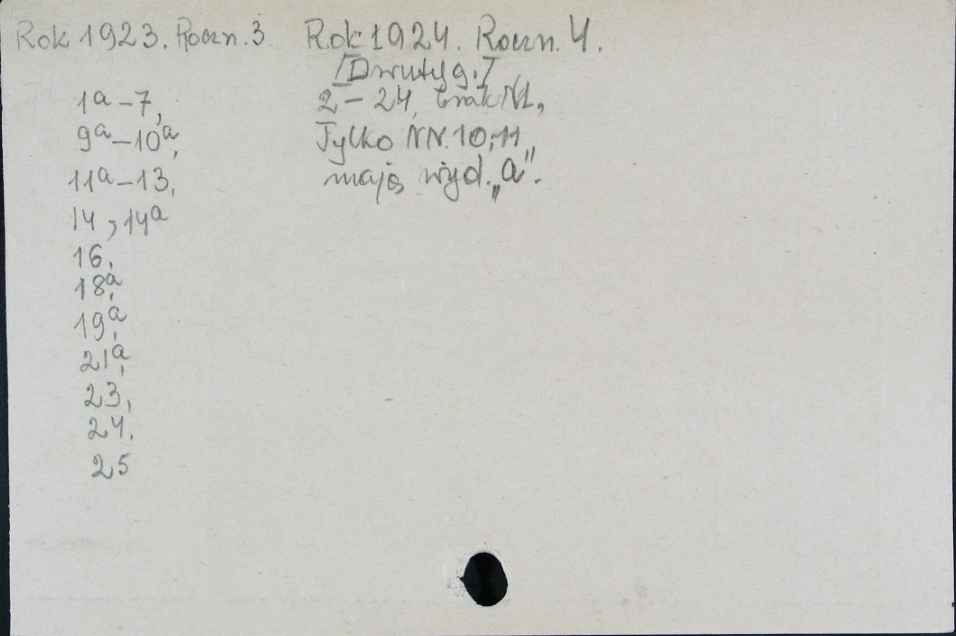 Rok 1923. Roczn. 3
1a-7,
9a-10a,
11a-13,
14, 14a
16,
18a,
19a,
21a,
23,
24.
25
Rok 1924. Roczn. 4.
[Dwutyg.]
2-24, brak N1,
Tylko NN. 10, 11
mają wyd. „a".